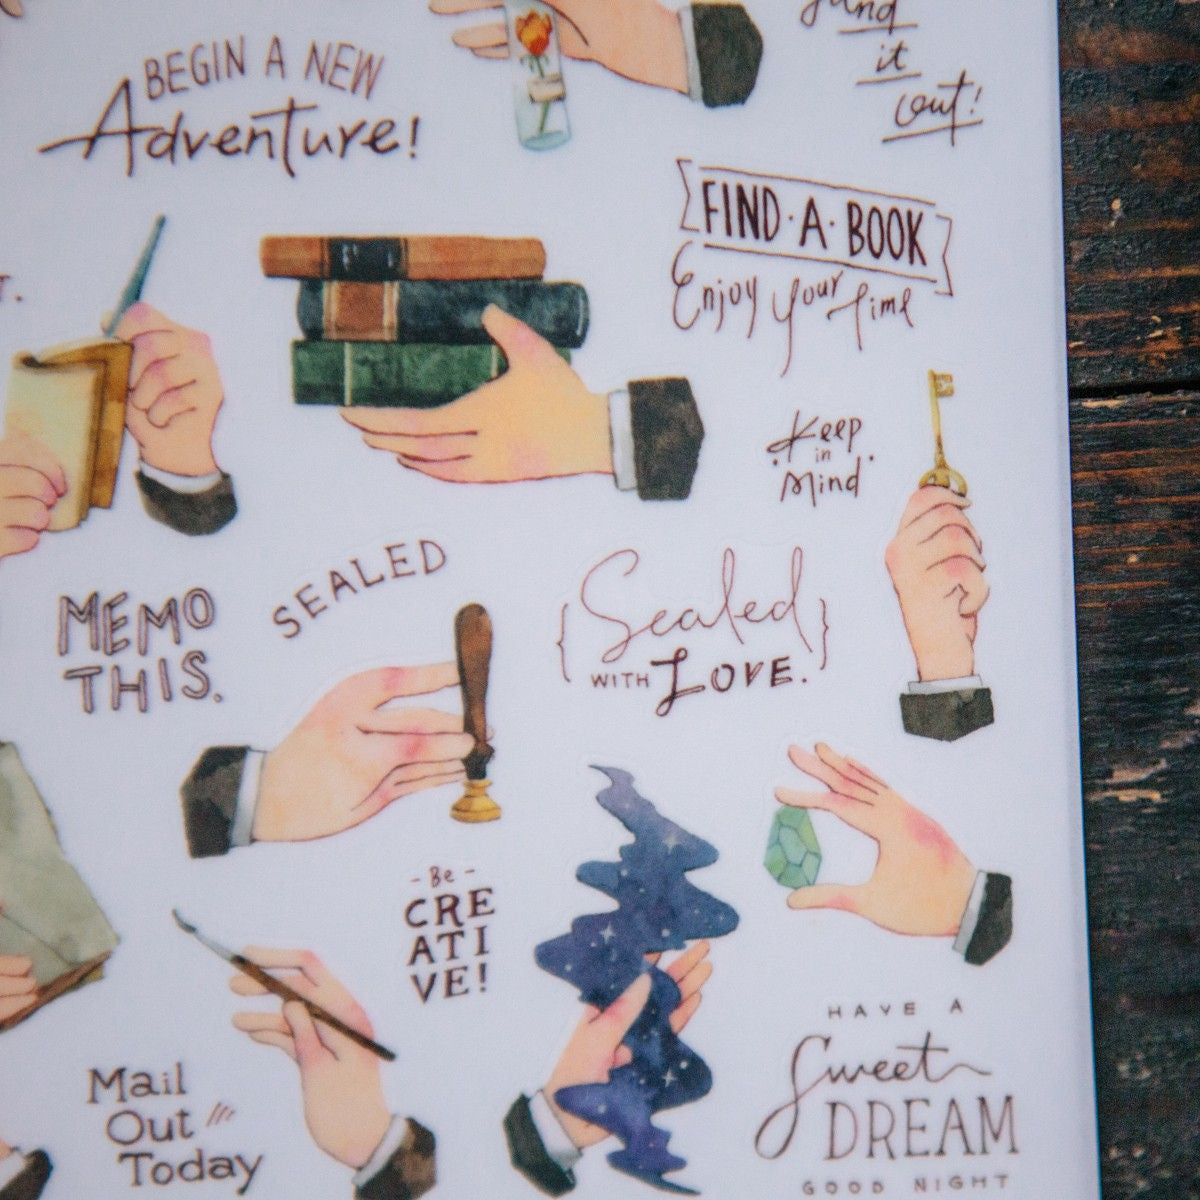 BEGIN A NEW
Adventure!
it
out!
FIND·A·BOOK
Enjoy your time
Keep
in
Mind
SEALED
MEMO
THIS.
Sealed
WITH LOVE.
- Be -
CRE
ATI
VE!
Mail
Out
Today
HAVE A
Sweet
DREAM
GOOD NIGHT